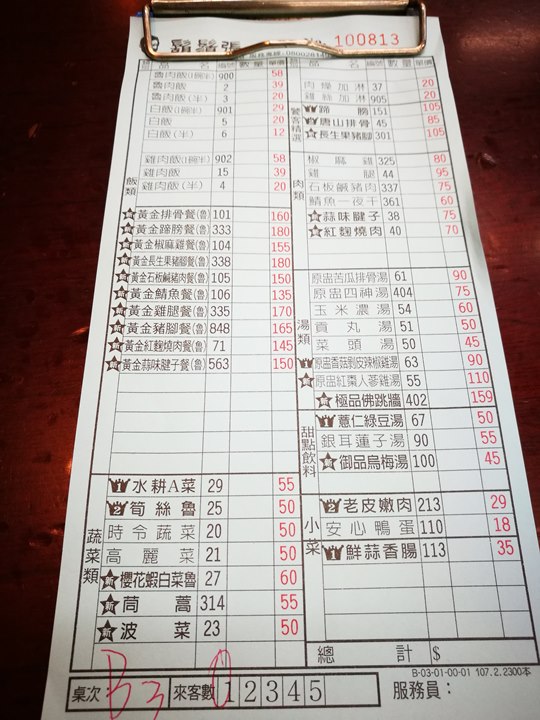 鬍鬚張
100813
品名 編號 數量 單價
飯類
魯肉飯(1碗半) 900 58
魯肉飯 2 39
魯肉飯(半) 3 20
白飯(1碗半) 901 29
白飯 5 20
白飯(半) 6 12
雞肉飯(1碗半) 902 58
雞肉飯 15 39
雞肉飯(半) 4 20
黃金排骨餐(魯) 101 160
黃金蹄膀餐(魯) 333 180
黃金椒麻雞餐(魯) 104 155
黃金長生果豬腳餐(魯) 338 180
黃金石板鹹豬肉餐(魯) 105 150
黃金鯖魚餐(魯) 106 135
黃金雞腿餐(魯) 335 170
黃金豬腳餐(魯) 848 165
黃金紅麴燒肉餐(魯) 71 145
黃金蒜味腱子餐(魯) 563 150
蔬菜類
1 水耕A菜 29 55
2 筍絲魯 25 50
時令蔬菜 20 50
高麗菜 21 50
新 櫻花蝦白菜魯 27 60
新 茼蒿 314 55
新 波菜 23 50
品名 編號 數量 單價
肉燥加淋 37 20
雞絲加淋 905 20
饕客精選
蹄膀 151 105
唐山排骨 45 85
長生果豬腳 301 105
肉類
椒麻雞 325 80
雞腿 44 95
石板鹹豬肉 337 75
鯖魚一夜干 361 60
蒜味腱子 38 75
紅麴燒肉 40 70
湯類
原盅苦瓜排骨湯 61 90
原盅四神湯 404 75
玉米濃湯 54 60
貢丸湯 51 50
菜頭湯 50 45
1 原盅香菇剝皮辣椒雞湯 63 90
原盅紅棗人蔘雞湯 55 110
新 極品佛跳牆 402 159
甜點飲料
1 薏仁綠豆湯 67 50
銀耳蓮子湯 90 55
新 御品烏梅湯 100 45
小菜
2 老皮嫩肉 213 29
安心鴨蛋 110 18
1 鮮蒜香腸 113 35
總計 $
B-03-01-00-01 107.2.2300本
桌次: B3 來客數 0 1 2 3 4 5 服務員：